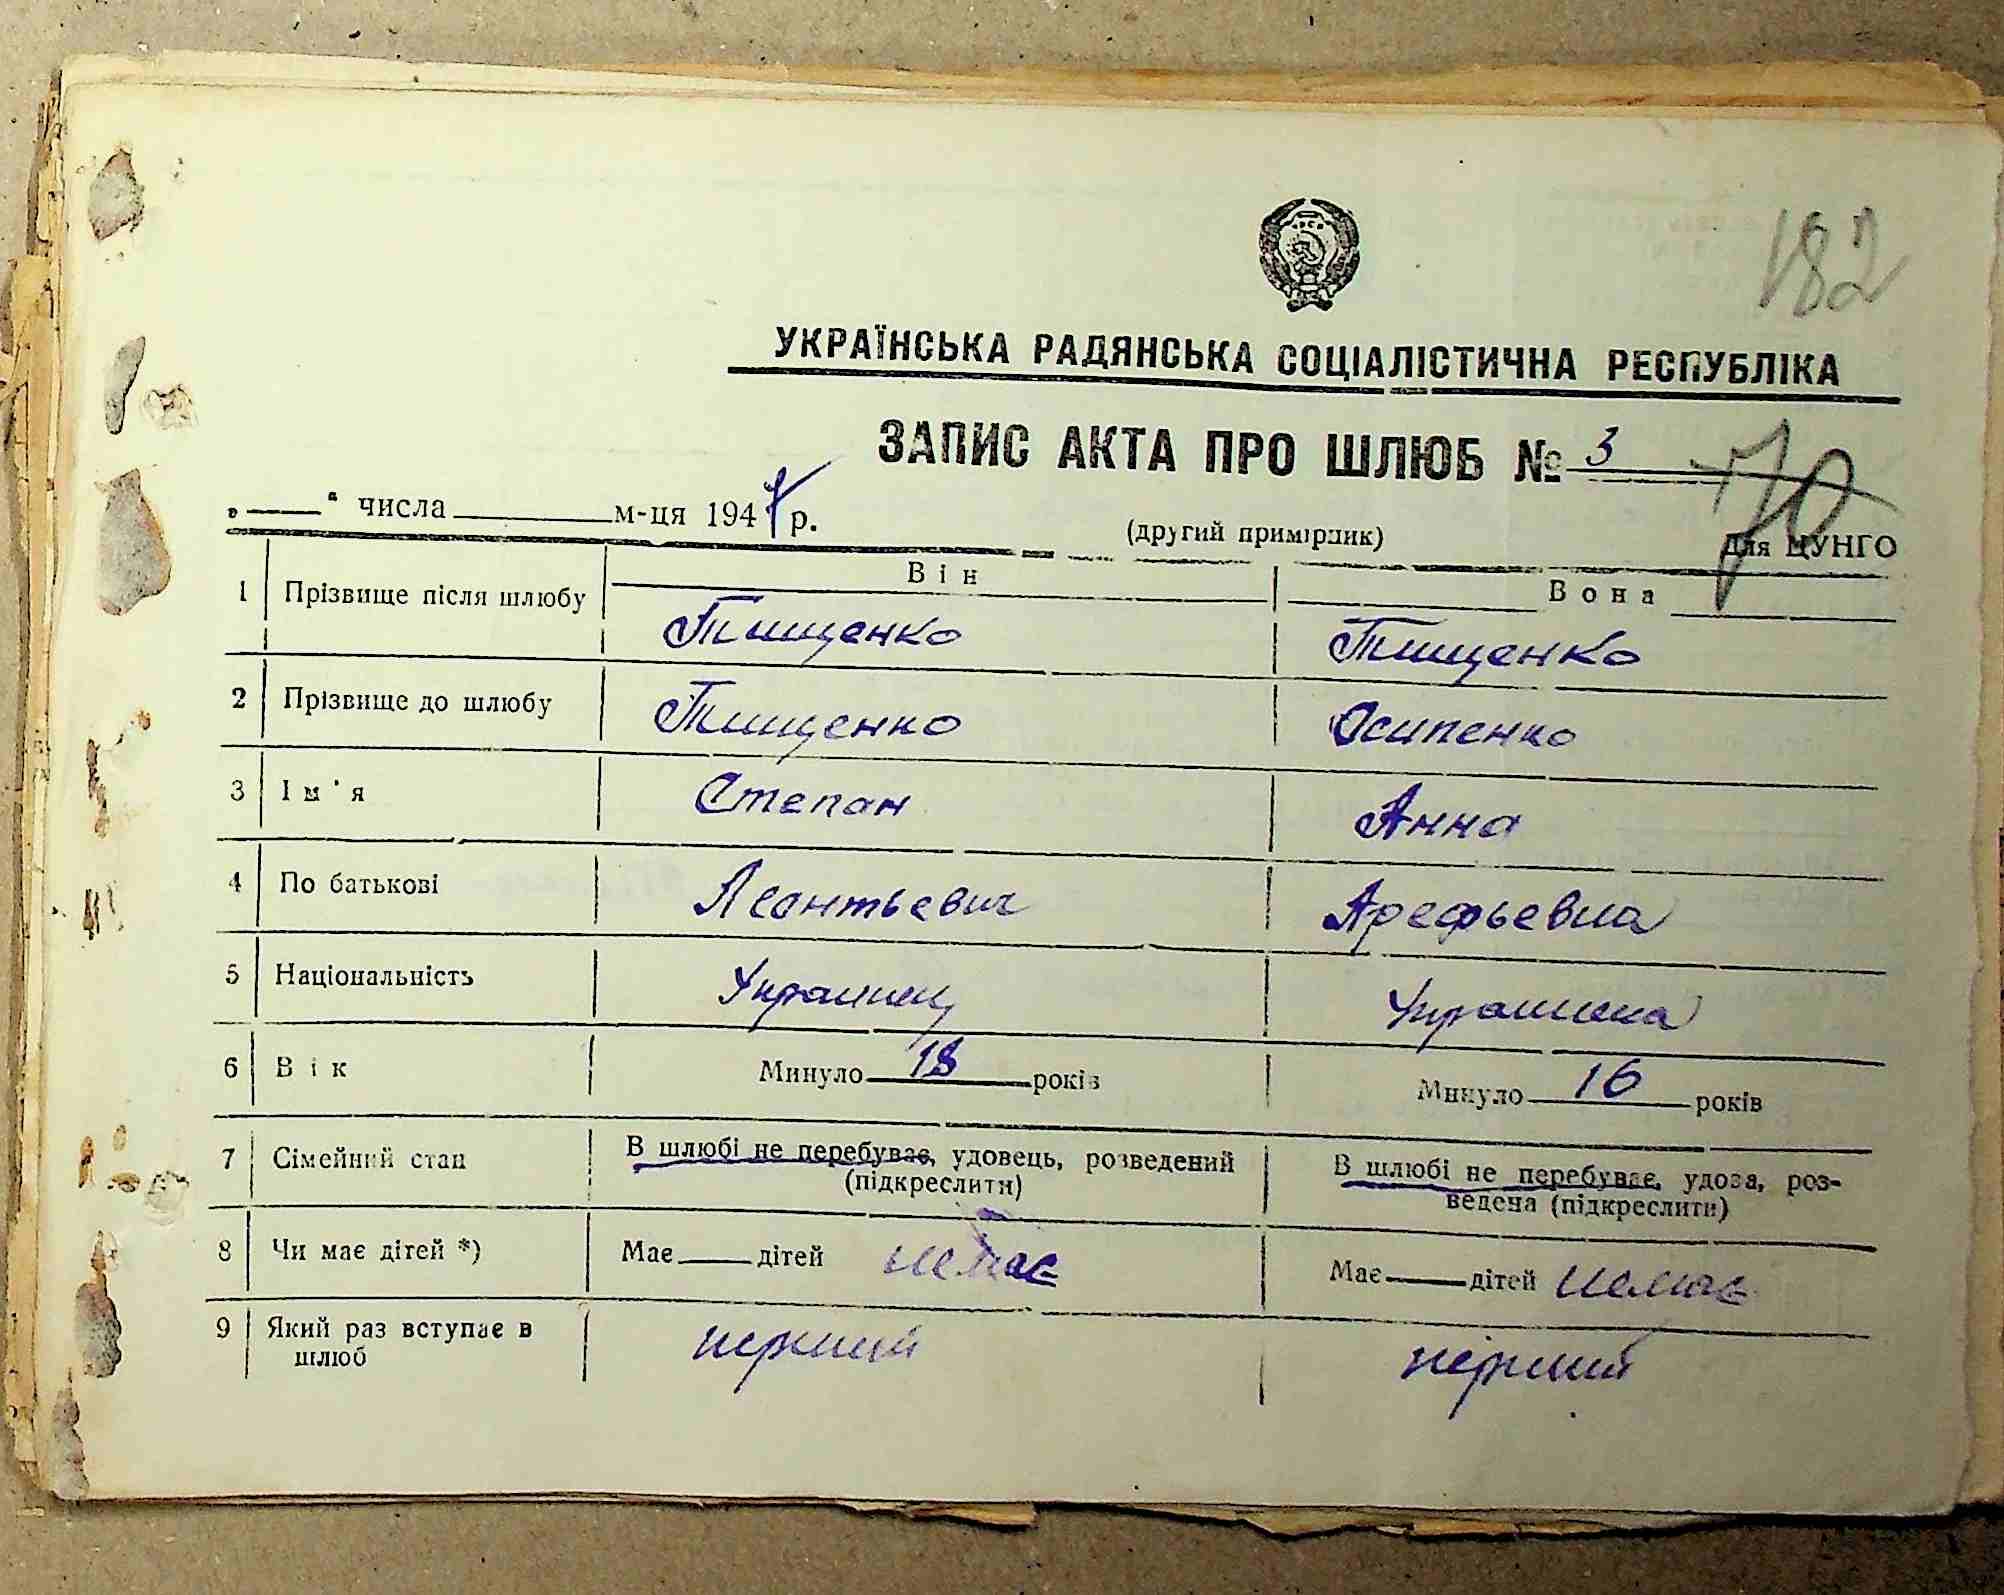 182
УКРАЇНСЬКА РАДЯНСЬКА СОЦІАЛІСТИЧНА РЕСПУБЛІКА
ЗАПИС АКТА ПРО ШЛЮБ № 3
70
„ “ числа м-ця 194 р.
(другий примірник)
Для ЦУНГО
Він Вона
1 Прізвище після шлюбу Тищенко Тищенко
2 Прізвище до шлюбу Тищенко Осипенко
3 Ім'я Степан Анна
4 По батькові Леонтьевич Арефьевна
5 Національність Украинец Украинка
6 Вік Минуло 18 років Минуло 16 років
7 Сімейний стан В шлюбі не перебуває, удовець, розведений (підкреслити) В шлюбі не перебуває, удова, роз-
ведена (підкреслити)
8 Чи має дітей *) Має дітей немає Має дітей немає
9 Який раз вступає в шлюб перший перший